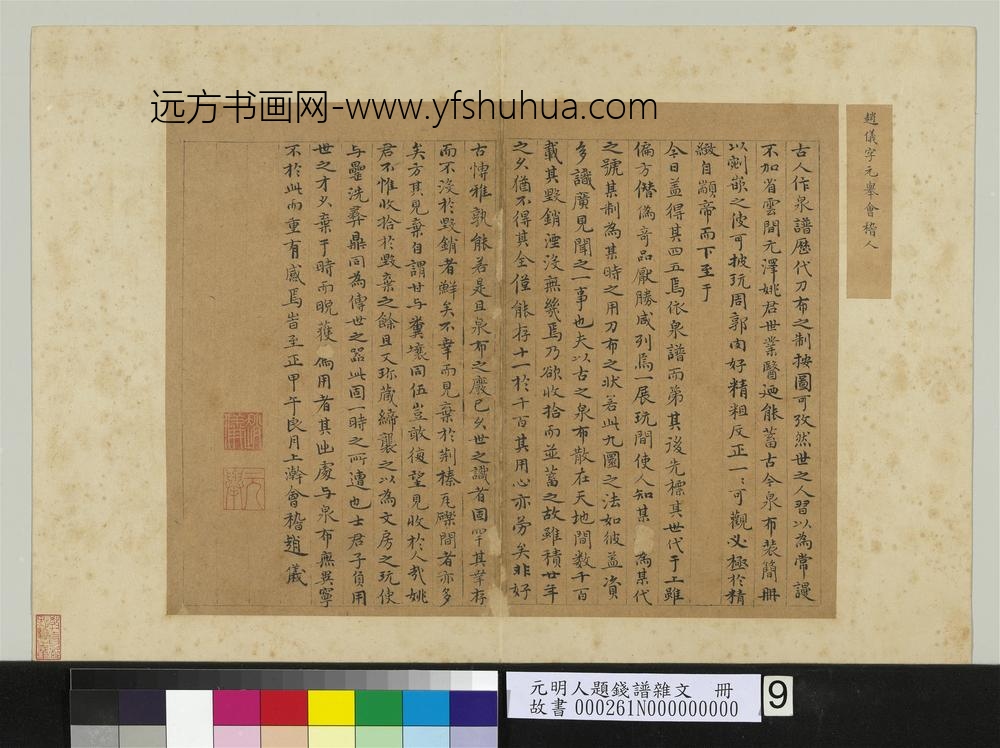 远方书画网-www.yfshuhua.com
趙儀字元舉會稽人
古人作泉譜歷代刀布之制按圖可攷然世之人習以為常謾
不加省雲間元澤姚君世業醫迺能蓄古今泉布裝簡冊
以剜嵌之俾可披玩周郭肉好精粗反正一一可觀必極於精
緻自顓帝而下至于
今日蓋得其四五焉依泉譜而第其後先標其世代于上雖
偏方僭偽奇品厭勝咸列焉一展玩間使人知某 為某代
之號某制為某時之用刀布之狀若此九圜之法如彼益資
多識廣見聞之一事也夫以古之泉布散在天地間數千百
載其毀銷湮沒無幾焉乃欲收拾而並蓄之故雖積廿年
之久猶不得其全僅能存十一於千百其用心亦勞矣非好
古博雅孰能若是且泉布之廢已久世之識者固罕其幸存
而不沒於毀銷者鮮矣不幸而見棄於荆榛瓦礫間者亦多
矣方其見棄自謂甘与糞壤同伍豈敢復望見收於人哉姚
君不惟收拾於毀棄之餘且又珍蔵締襲之以為文房之玩使
与罍洗彝鼎同為傳世之器此固一時之所遭也士君子負用
世之才久棄于時而晚獲 用者其出處与泉布無異寧
不於此而重有感焉旹至正甲午良月上澣會稽趙儀
趙儀
元舉
元明人題錢譜雜文 冊
故書000261N000000000
9